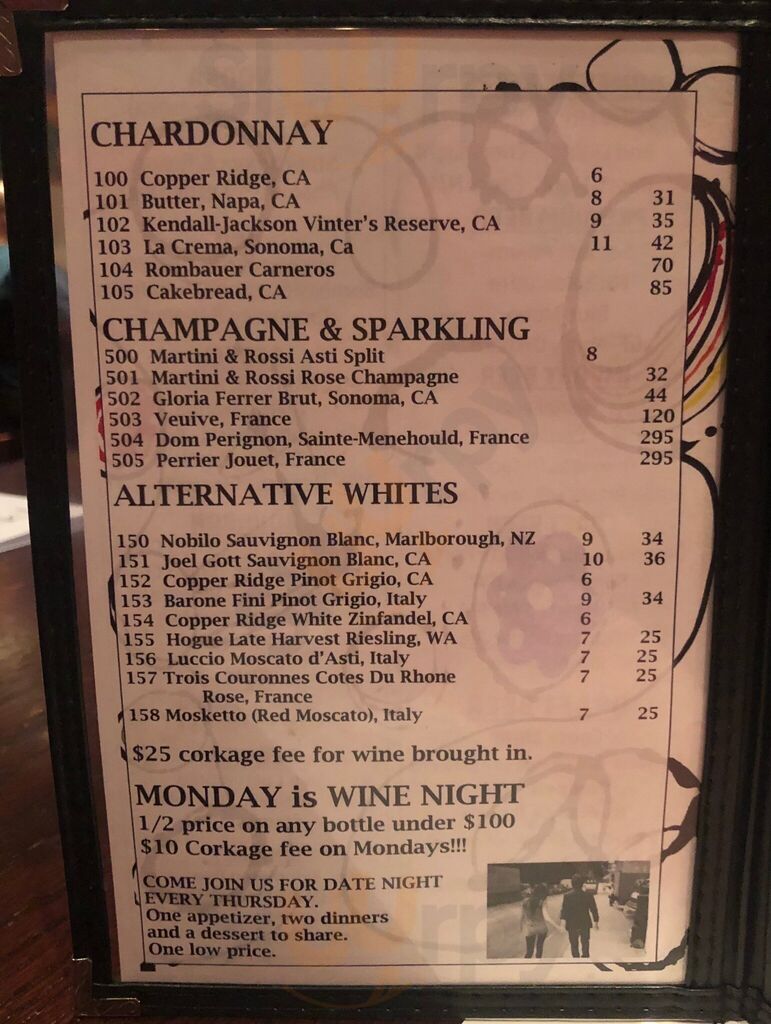 CHARDONNAY
100 Copper Ridge, CA 6
101 Butter, Napa, CA 8 31
102 Kendall-Jackson Vinter's Reserve, CA 9 35
103 La Crema, Sonoma, Ca 11 42
104 Rombauer Carneros 70
105 Cakebread, CA 85
CHAMPAGNE & SPARKLING
500 Martini & Rossi Asti Split 8
501 Martini & Rossi Rose Champagne 32
502 Gloria Ferrer Brut, Sonoma, CA 44
503 Veuive, France 120
504 Dom Perignon, Sainte-Menehould, France 295
505 Perrier Jouet, France 295
ALTERNATIVE WHITES
150 Nobilo Sauvignon Blanc, Marlborough, NZ 9 34
151 Joel Gott Sauvignon Blanc, CA 10 36
152 Copper Ridge Pinot Grigio, CA 6
153 Barone Fini Pinot Grigio, Italy 9 34
154 Copper Ridge White Zinfandel, CA 6
155 Hogue Late Harvest Riesling, WA 7 25
156 Luccio Moscato d'Asti, Italy 7 25
157 Trois Couronnes Cotes Du Rhone 7 25
Rose, France
158 Mosketto (Red Moscato), Italy 7 25
$25 corkage fee for wine brought in.
MONDAY is WINE NIGHT
1/2 price on any bottle under $100
$10 Corkage fee on Mondays!!!
COME JOIN US FOR DATE NIGHT
EVERY THURSDAY.
One appetizer, two dinners
and a dessert to share.
One low price.